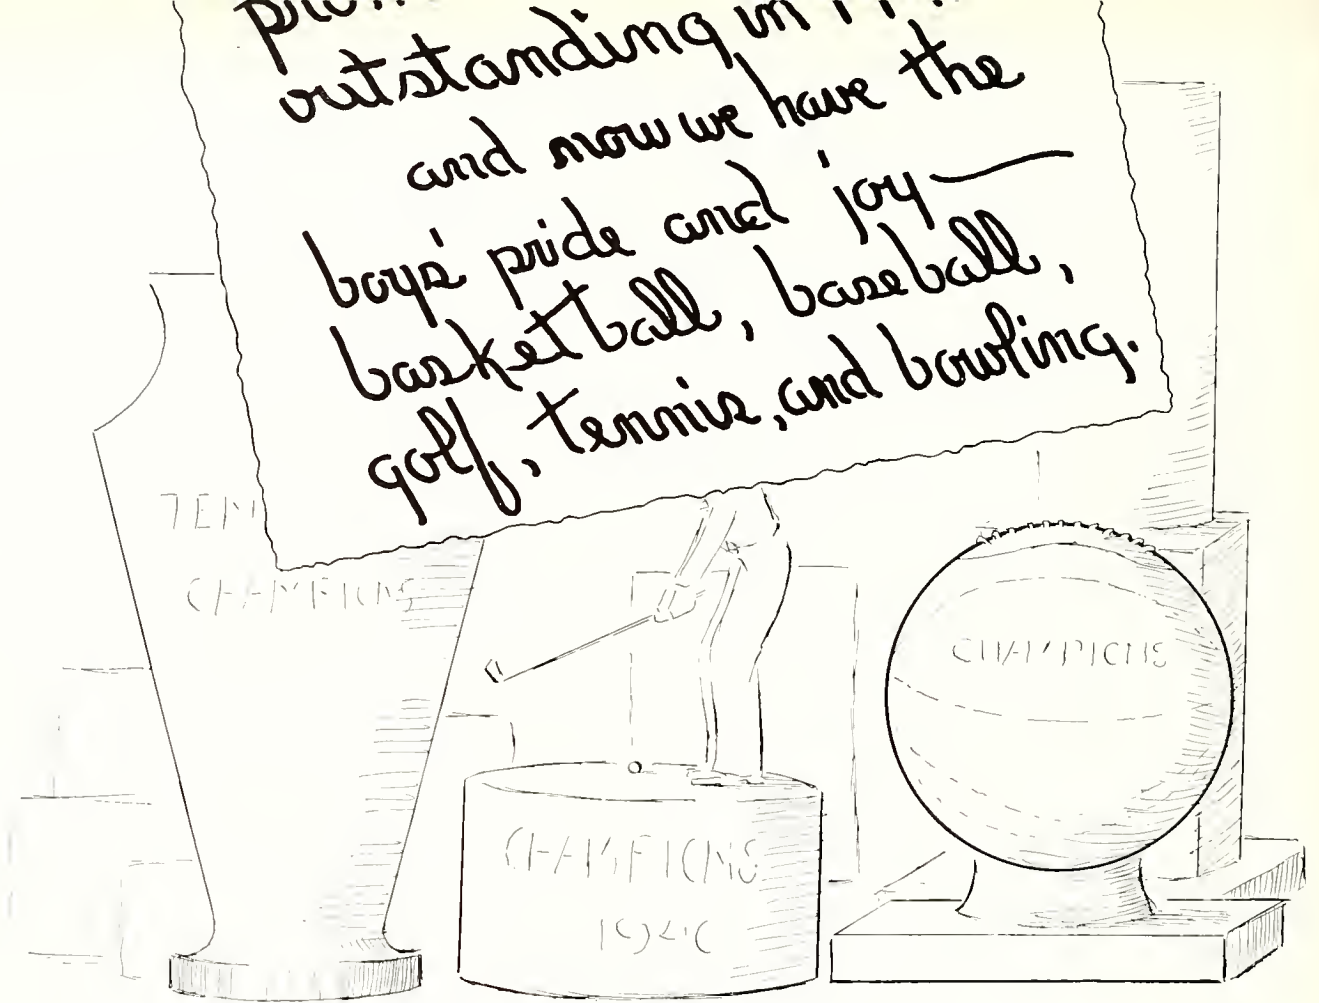 outstanding in
and now we have the
boys' pride and joy—
basketball, baseball,
golf, tennis, and bowling.
CHAMPIONS
CHAMPIONS
CHAMPIONS